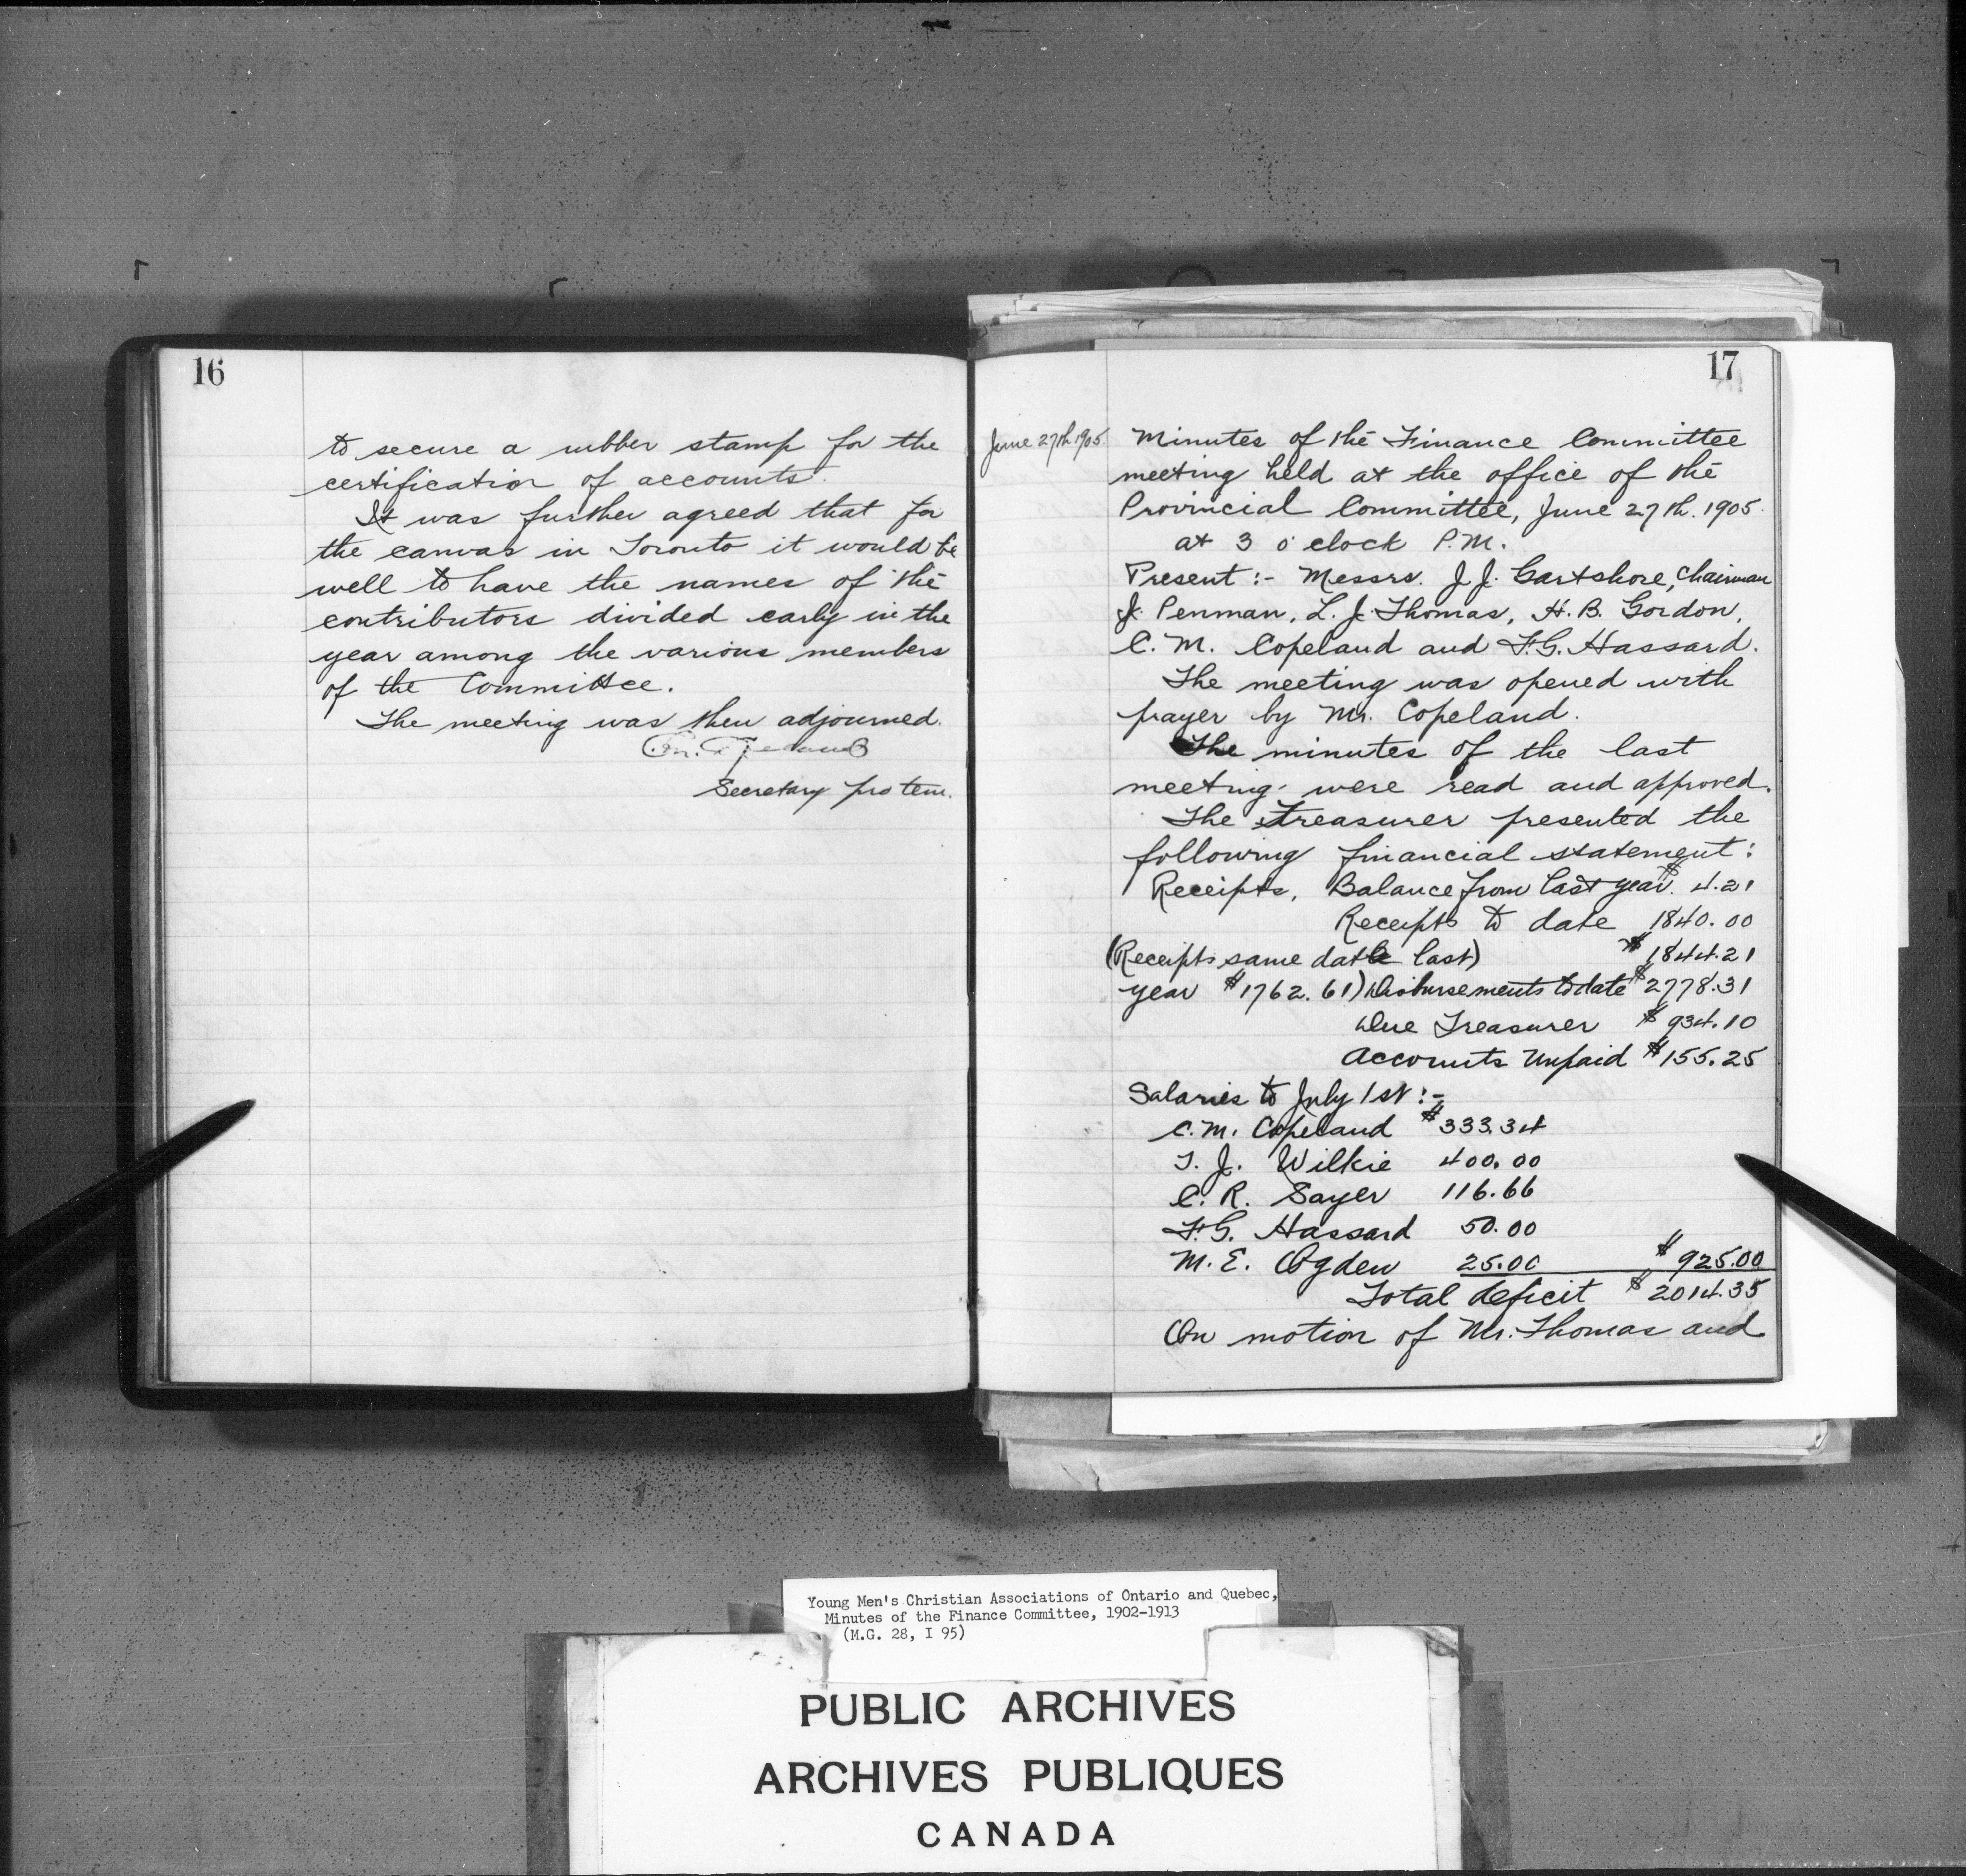 16
to secure a rubber stamp for the
certification of accounts.
It was further agreed that for
the canvas in Toronto it would be
well to have the names of the
contributors divided early in the
year among the various members
of the Committee.
The meeting was then adjourned.
C.M. Copeland
Secretary pro tem.
17
June 27th 1905.
Minutes of the Finance Committee
meeting held at the office of the
Provincial Committee, June 27th. 1905.
at 3 o'clock P.M.
Present:- Messrs. J.J. Gartshore, Chairman
J. Penman, L.J. Thomas, H.B. Gordon,
C.M. Copeland and F.G. Hassard.
The meeting was opened with
prayer by Mr. Copeland.
The minutes of the last
meeting were read and approved.
The Treasurer presented the
following financial statement:
Receipts, Balance from last year. $4.21
Receipts to date 1840.00
(Receipts same date last) $1844.21
year $1762.61) Disbursements to date $2778.31
Due Treasurer $934.10
Accounts Unpaid $155.25
Salaries to July 1st:-
C.M. Copeland $333.34
T.J. Wilkie 400.00
C.R. Sayer 116.66
F.G. Hassard 50.00
M.E. Ogden 25.00 $925.00
Total deficit $2014.35
On motion of Mr. Thomas and
Young Men's Christian Associations of Ontario and Quebec,
Minutes of the Finance Committee, 1902-1913
(M.G. 28, I 95)
PUBLIC ARCHIVES
ARCHIVES PUBLIQUES
CANADA